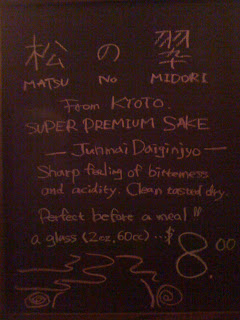 松 の 翠
MATSU NO MIDORI
From KYOTO.
SUPER PREMIUM SAKE
— Junmai Daiginjyo —
Sharp feeling of bitterness
and acidity. Clean tasted dry.
Perfect before a meal!!
a glass (2oz, 60cc) ...$8.00